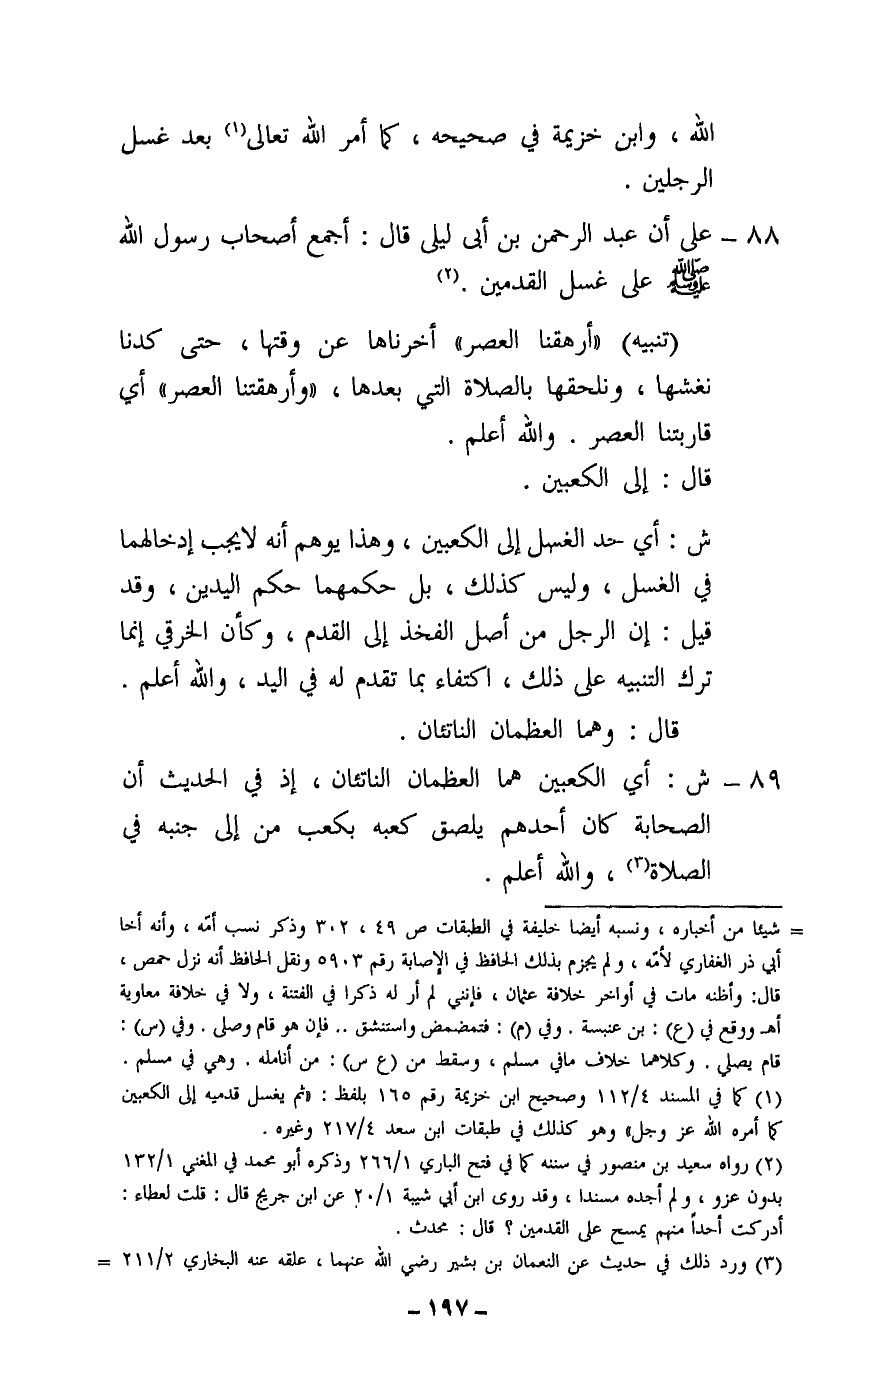 الله ، وابن خزيمة في صحيحه ، كما أمر الله تعالى(١) بعد غسل
الرجلين .
٨٨ – على أن عبد الرحمن بن أبى ليلى قال : أجمع أصحاب رسول الله
ﷺ على غسل القدمين .(٢)
(تنبيه) «أرهقنا العصر» أخرناها عن وقتها ، حتى كدنا
نغشها ، ونلحقها بالصلاة التي بعدها ، «وأرهقتنا العصر» أي
قاربتنا العصر . والله أعلم .
قال : إلى الكعبين .
ش : أي حد الغسل إلى الكعبين ، وهذا يوهم أنه لايجب إدخالهما
في الغسل ، وليس كذلك ، بل حكمهما حكم اليدين ، وقد
قيل : إن الرجل من أصل الفخذ إلى القدم ، وكأن الخرقي إنما
ترك التنبيه على ذلك ، اكتفاء بما تقدم له في اليد ، والله أعلم .
قال : وهما العظمان الناتئان .
٨٩ – ش : أي الكعبين هما العظمان الناتئان ، إذ في الحديث أن
الصحابة كان أحدهم يلصق كعبه بكعب من إلى جنبه في
الصلاة(٣) ، والله أعلم .
= شيئا من أخباره ، ونسبه أيضا خليفة في الطبقات ص ٤٩ ، ٣٠٢ وذكر نسب أمّه ، وأنه أخا
أبي ذر الغفاري لأمّه ، ولم يجزم بذلك الحافظ في الإصابة رقم ٥٩٠٣ ونقل الحافظ أنه نزل حمص ،
قال: وأظنه مات في أواخر خلافة عثمان ، فإنني لم أر له ذكرا في الفتنة ، ولا في خلافة معاوية
أهـ ووقع في (ع) : بن عنبسة . وفي (م) : فتمضمض واستنشق .. فإن هو قام وصلى . وفي (س) :
قام يصلي . وكلاهما خلاف مافي مسلم ، وسقط من (ع س) : من أنامله . وهي في مسلم .
(١) كما في المسند ١١٢/٤ وصحيح ابن خزيمة رقم ١٦٥ بلفظ : «ثم يغسل قدميه إلى الكعبين
كما أمره الله عز وجل» وهو كذلك في طبقات ابن سعد ٢١٧/٤ وغيره .
(٢) رواه سعيد بن منصور في سننه كما في فتح الباري ٢٦٦/١ وذكره أبو محمد في المغني ١٣٢/١
بدون عزو ، ولم أجده مسندا ، وقد روى ابن أبي شيبة ٢٠/١ عن ابن جريج قال : قلت لعطاء :
أدركت أحداً منهم يمسح على القدمين ؟ قال : محدث .
(٣) ورد ذلك في حديث عن النعمان بن بشير رضي الله عنهما ، علقه عنه البخاري ٢١١/٢ =
– ١٩٧ –